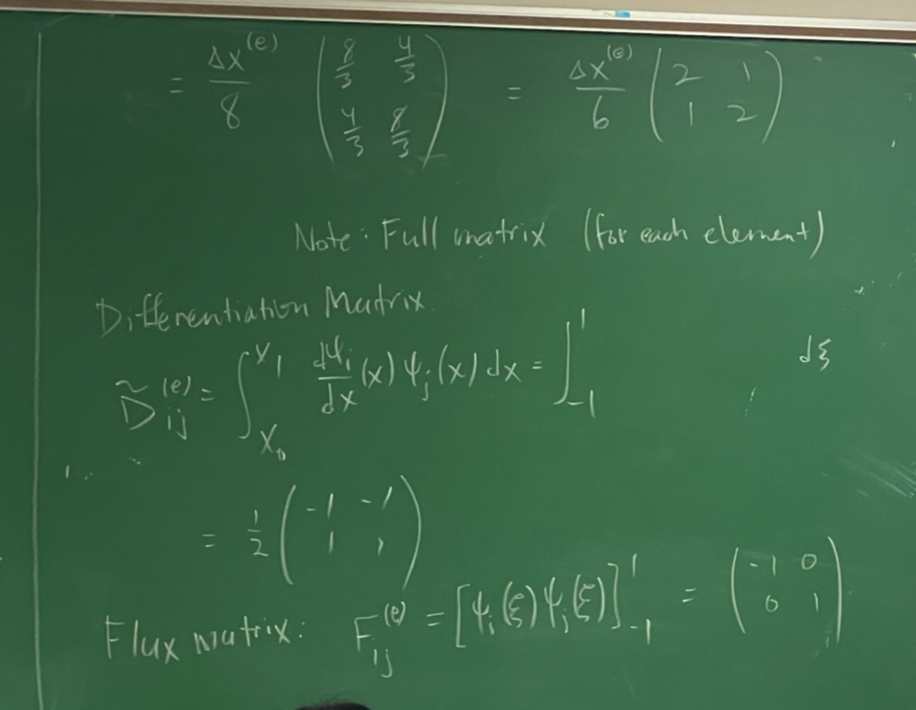 = Δx^(e)/8 (8/3 4/3 ; 4/3 8/3) = Δx^(e)/6 (2 1 ; 1 2)
Note: Full matrix (for each element)
Differentiation Matrix
D̃_ij^(e) = ∫_{x_0}^{x_1} dψ_i/dx (x) ψ_j(x) dx = ∫_{-1}^{1} dξ
= 1/2 (-1 -1 ; 1 1)
Flux matrix: F_ij^(e) = [ψ_i(ξ) ψ_j(ξ)]_{-1}^{1} = (-1 0 ; 0 1)